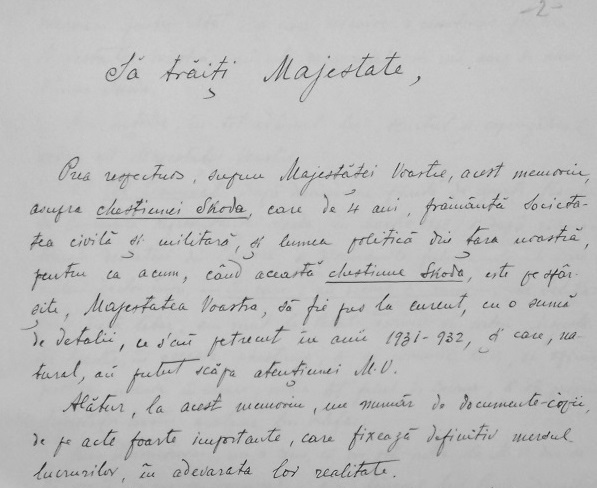 -2-
Să trăiți Majestate,
Prea respectuos, supun Majestăței Voastre, acest memoriu,
asupra chestiunei Skoda, care de 4 ani, frământă Societa-
tea civilă și militară, și lumea politică din țara noastră,
pentru ca acum, când această chestiune Skoda, este pe sfâr-
șite, Majestatea Voastra, să fie pus la curent, cu o sumă
de detalii, ce s'au petrecut în anii 1931-932, și care, na-
tural, au putut scăpa atențiunei M.V.
Alătur, la acest memoriu, un număr de documente-copii,
de pe acte foarte importante, care fixează definitiv mersul
lucrurilor, în adevarata lor realitate.